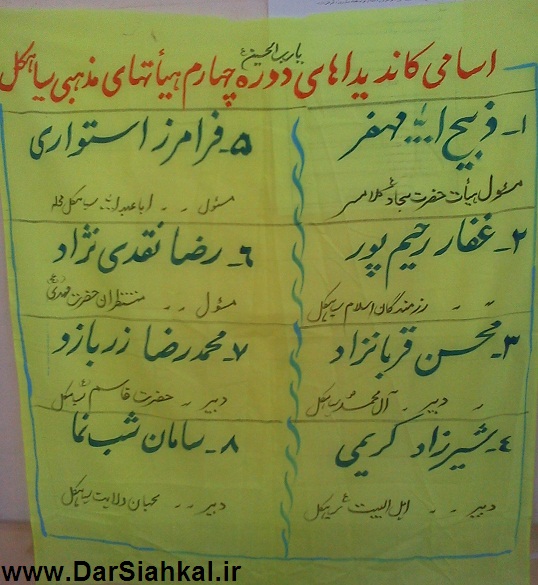 یا رب الحسین
اسامی کاندیداهای دوره چهارم هیأتهای مذهبی سیاهکل
۱- ذبیح ا... مهفر
مسئول هیأت حضرت سجاد
۲- غفار رحیم پور
رزمندگان اسلام سیاهکل
۳- محسن قربانزاد
دبیر - آل محمد سیاهکل
۴- شیرزاد کریمی
دبیر - - اهل البیت سیاهکل
۵- فرامرز استواری
مسئول - - اباعبدا...
۶- رضا نقدی نژاد
مسئول - - منتظران حضرت مهدی
۷- محمدرضا زربازو
دبیر - - حضرت قاسم سیاهکل
۸- سامان شب نما
دبیر - - محبان ولایت سیاهکل
www.DarSiahkal.ir